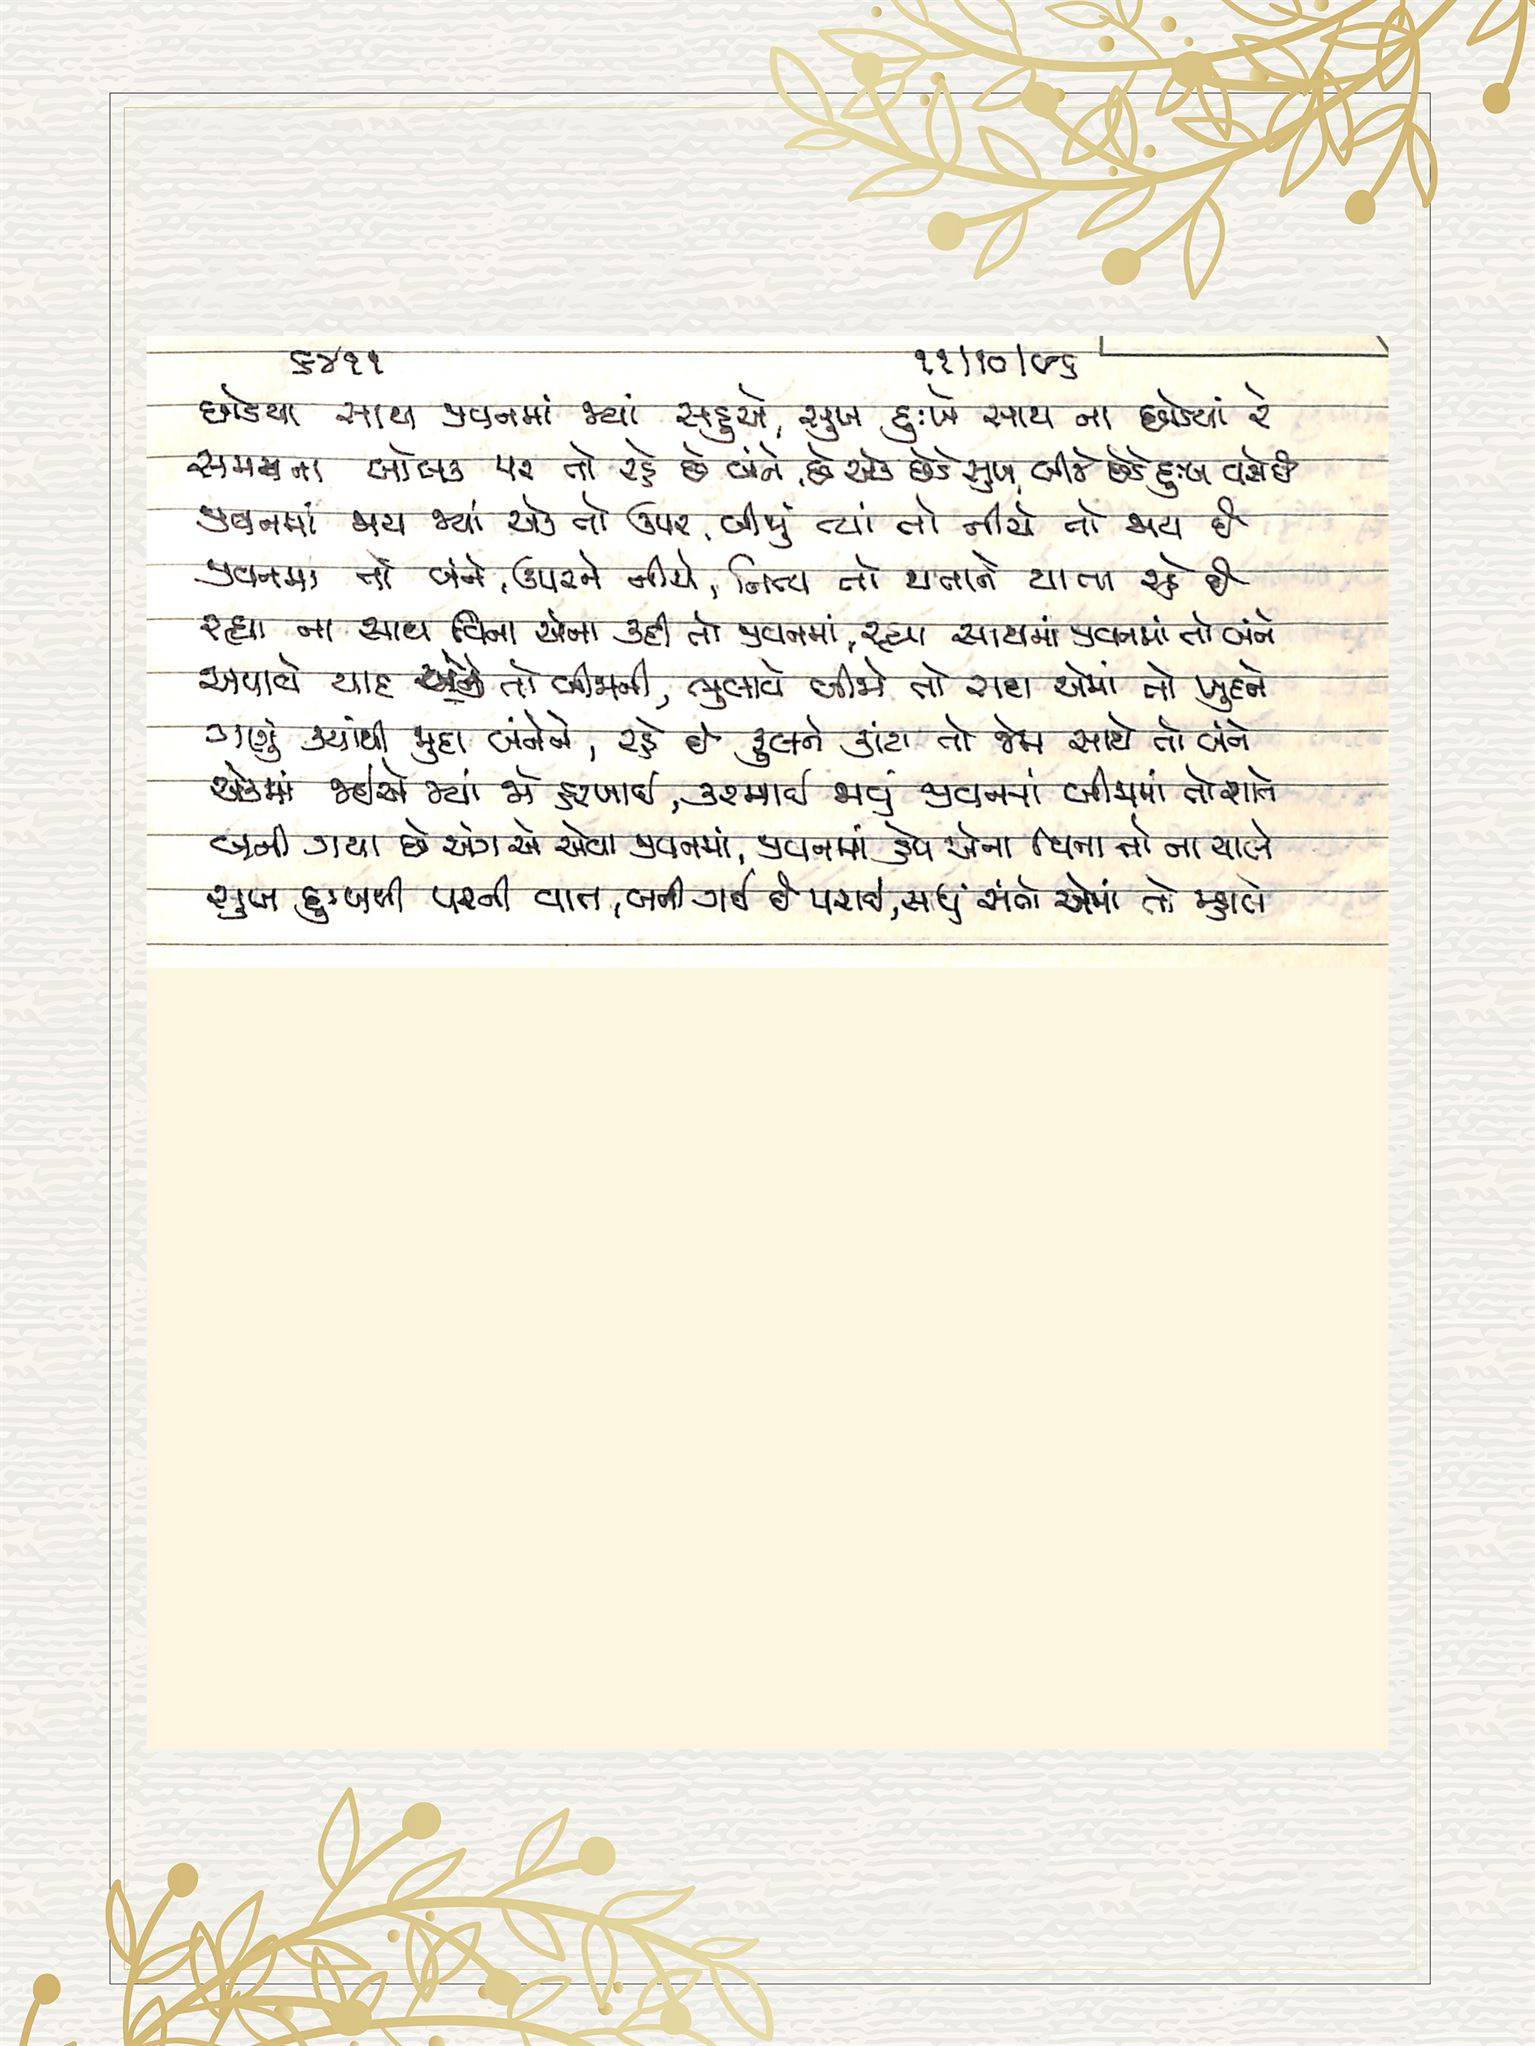 ૬૪૧૧ ૧૧/૧૦/૯૬
છોડયા સાથ જીવનમાં જ્યાં સહુએ, સુખ દુઃખે સાથ ના છોડ્યાં રે
સમયના લોલક પર તો રહે છે બંને, છે એક છેડે સુખ, બીજે છેડે દુઃખ વસે છે
જીવનમાં જાય જ્યાં એક તો ઉપર, બીજું ત્યાં તો નીચે તો જાય છે
જીવનમાં તો બંને, ઉપરને નીચે, નિત્ય તો થાતાને થાતા રહે છે
રહ્યા ના સાથ વિના એના કદી તો જીવનમાં, રહ્યા સાથમાં જીવનમાં તો બંને
અપાવે યાદ તો બીજાની, ભુલાવે બીજો તો રાહ એમાં તો ખુદને
ગણું ક્યાંથી જુદા બંનેને, રહે છે ફુલને કાંટા તો જેમ સાથે તો બંને
એકમાં જઈએ જ્યાં જો હરખાઈ, કરમાઈ જાવું જીવનમાં બીજામાં તો શાને
બની ગયા છે અંગ એ એવા જીવનમાં, જીવનમાં હવે એના વિના તો ના ચાલે
સુખ દુઃખથી પરની વાત, બની ગઈ છે પરાઈ, સાધુ સંતો એમાં તો મ્હાલે